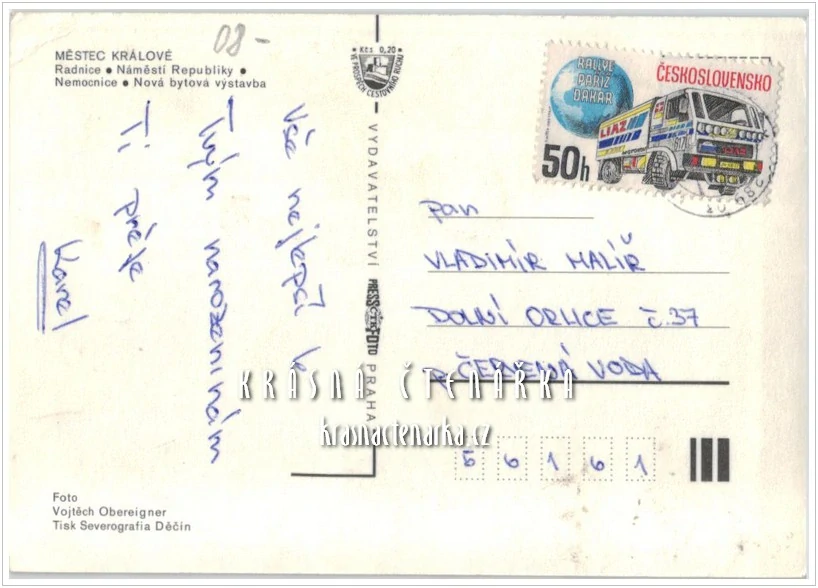 08-
MĚSTEC KRÁLOVÉ
Radnice • Náměstí Republiky •
Nemocnice • Nová bytová výstavba
Vše nejlepší k
Tvým narozeninám
Ti přeje
Karel
Foto
Vojtěch Obereigner
Tisk Severografia Děčín
Kčs 0,20
VE PROSPĚCH CESTOVNÍHO RUCHU
VYDAVATELSTVÍ PRESSFOTO PRAHA
ČTK
RALLYE
PAŘÍŽ
DAKAR
ČESKOSLOVENSKO
LIAZ
50h
pan
VLADIMÍR MALÍŘ
DOLNÍ ORLICE č.37
p. ČERVENÁ VODA
56161
KRÁSNÁ ČTENÁŘKA
krasnactenarka.cz